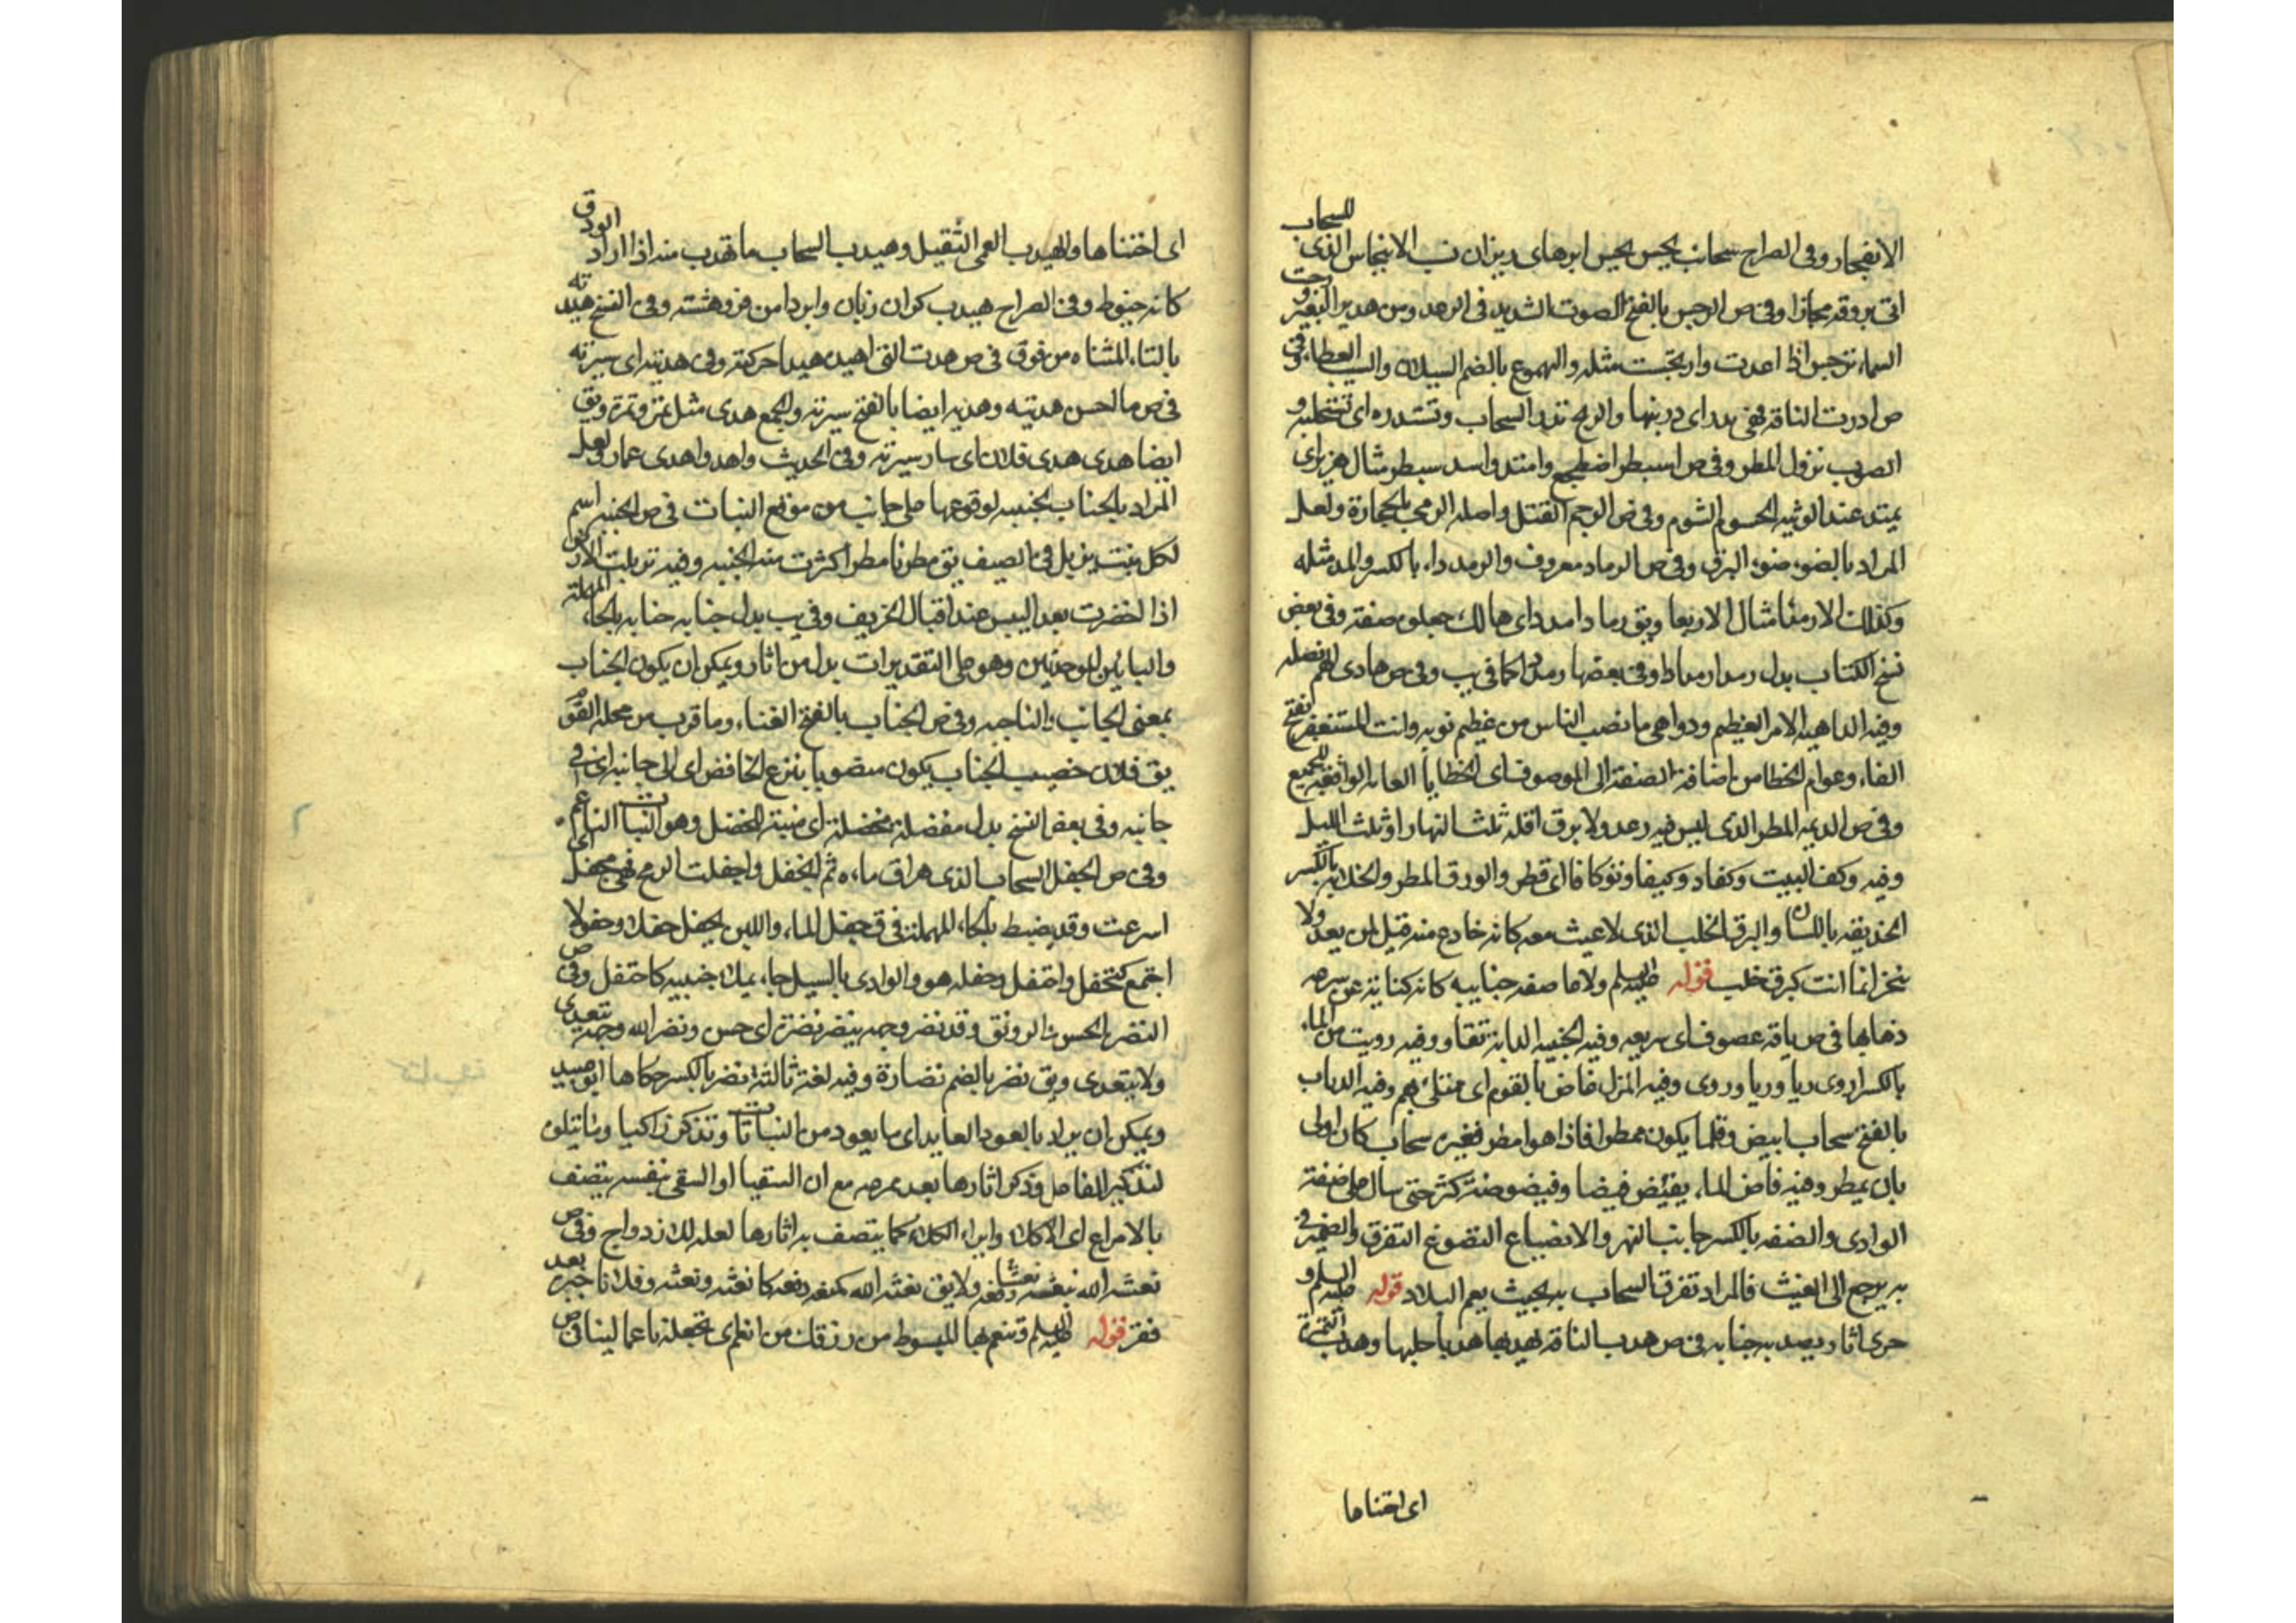 الانفجار وفى الصراح سحائب بجس بجيس ابرهاى ريزان ب الانبجاس الذى للسحاب
اتى بروقه مجازا وفى ص الرجس بالفتح الصوت الشديد فى الرعد ومن هدير البعير ورجت
السماء ترجس اذا رعدت وارتجست مثله والهموع بالضم السيلان والسيب العطاء وفى
ص ادرت الناقة فهى مدر اى در بنها والريح تدر السحاب وتستدره اى تستحلبه و
الصوب نزول المطر وفى ص اسبطر اضطجع وامتد واسد سبطر مثال هزبر اى
يمتد عند الوثبه الحسوم الشوم وفى ص الرجم القتل واصله الرمى بالحجارة ولعل
المراد بالضوء ضوء البرق وفى ص الرماد معروف والرمدداء بالكسر والمد مثله
وكذلك الارمدا مثال الاربعا ويق رماد رمدد اى هالك جعلوه صفة وفى بعض
نسخ الكتاب بدل رمدا رماط وفى بعضها رمدد كما فى يب وفى ص هادى
وفيه الداهيه الامر العظيم ودواهى ما نصب الناس من عظيم نوبه وانت المستغفر بفتح
الفاء وعوام الخطا من اضافة الصفة الى الموصوف اى الخطايا العامه الواقعه للجميع
وفى ص الديمه المطر الذى ليس فيه رعد ولا برق اقله ثلث النهار او ثلث الليل
وفيه وكف البيت وكفا ووكيفا وتوكافا اى قطر والودق المطر والخلابه بالكسر
الخديعه باللسان والبرق الخلب الذى لا غيث معه كانه خادع منه قيل لمن يعد ولا
ينجز انما انت كبرق خلب قوله عليه السلم ولا ماصفه جنايبه كانه كناية عن سرعه
ذهابها فى ص ناقه عصوف اى سريعه وفيه الجنيبه الدابه تقاد وفيه رويت من الماء
بالكسر اروى ريا وريا وروى وفيه المنزل غاص بالقوم اى ممتلى بهم وفيه الرباب
بالفتح سحاب ابيض وقلما يكون ممطرا فاذا هو امطر فغيره سحاب كان اولى
بان يمطر وفيه فاض الماء يفيض فيضا وفيضوضة كثر حتى سال على ضفة
الوادى والضفه بالكسر جانب النهر والانصياع التصوع التفرق والضمير فى
به يرجع الى الغيث فالمراد تفرق السحاب به بحيث يعم البلاد قوله عليه السلم و
جرى اثار بصدبه جنابه فى ص هدب الناقة يهدبها هدبا حلبها وهدب الثمرة
اى اجتناها
اى اجتناها والهيدب العى الثقيل وهيدب السحاب ما تهدب منه اذا اراد الودق
كانه خيوط وفى الصراح هيدب كران زبان وابر دامن فروهشته وفى النسخ هيدته
بالتاء المثناه من فوق فى ص هدت الشى اهيده هيدا حركته وفى هديته اى سيرته
فى ص ما احسن هديته وهديه ايضا بالفتح سيرته والجمع هدى مثل تمرة وتمر ويق
ايضا هدى هدى فلان اى سار سيرته وفى الحديث واهدوا هدى عمار ولعل
المراد بالجناب جنبه لوقوعها على جانب من موقع النبات فى ص الجنبه اسم
لكل نبت يتربل فى الصيف يق مطرنا مطرا كثرت منه الجنبه وفيه تربلت الارض
اذا اخضرت بعد اليبس عند اقبال الخريف وفى يب بدل جنابه حبابه بالحاء المهملة
والبائين الموحدتين وهو على التقديرات بدل من اثار ويمكن ان يكون الجناب
بمعنى الجانب والناحيه وفى ص الجناب بالفتح الفناء وما قرب من محله القوم
يق فلان خصيب الجناب يكون منصوبا بنزع الخافض اى الى جانبه اى فى
جانبه وفى بعض النسخ بدل مفضلة مخضلة اى منبتة للخضل وهو النبات الناعم
وفى ص الجفل السحاب الذى هراق ماءه ثم انجفل واجفلت الريح فهى مجفل اى
اسرعت وقد يضبط بالحاء المهملة فى ق حفل الماء واللبن يحفل حفلا وحفولا
اجتمع كتحفل واحتفل وحفله هو والوادى بالسيل جاء بملء جنبيه كاحتفل وفى ص
النضرة الحسن والرونق وقد نضر وجهه ينضر نضرة اى حسن ونضر الله وجهه يتعدى
ولا يتعدى ويق نضر بالضم نضارة وفيه لغة ثالثة نضر بالكسر حكاها ابو عبيد
ويمكن ان يراد بالعود العايد اى ما يعود من النباتات وتذكر زاكيا وما يتلوه
لتذكير الفاعل وذكر اثارها بعد مرعه مع ان السقيا او السقى بنفسه يتصف
بالامراع اى الاكلاء وابراء الكلاء كما يتصف به اثارها لعله للازدواج وفى ص
نعشه الله ينعشه نعشا رفعه ولا يق نعشه الله كمنعه رفعه كانعشه ونعشه وفلانا جبره بعد
فقر قوله عليه السلم وتنعم بها المبسوط من رزقك من انعم اى تجعله ناعما لينا فى ص